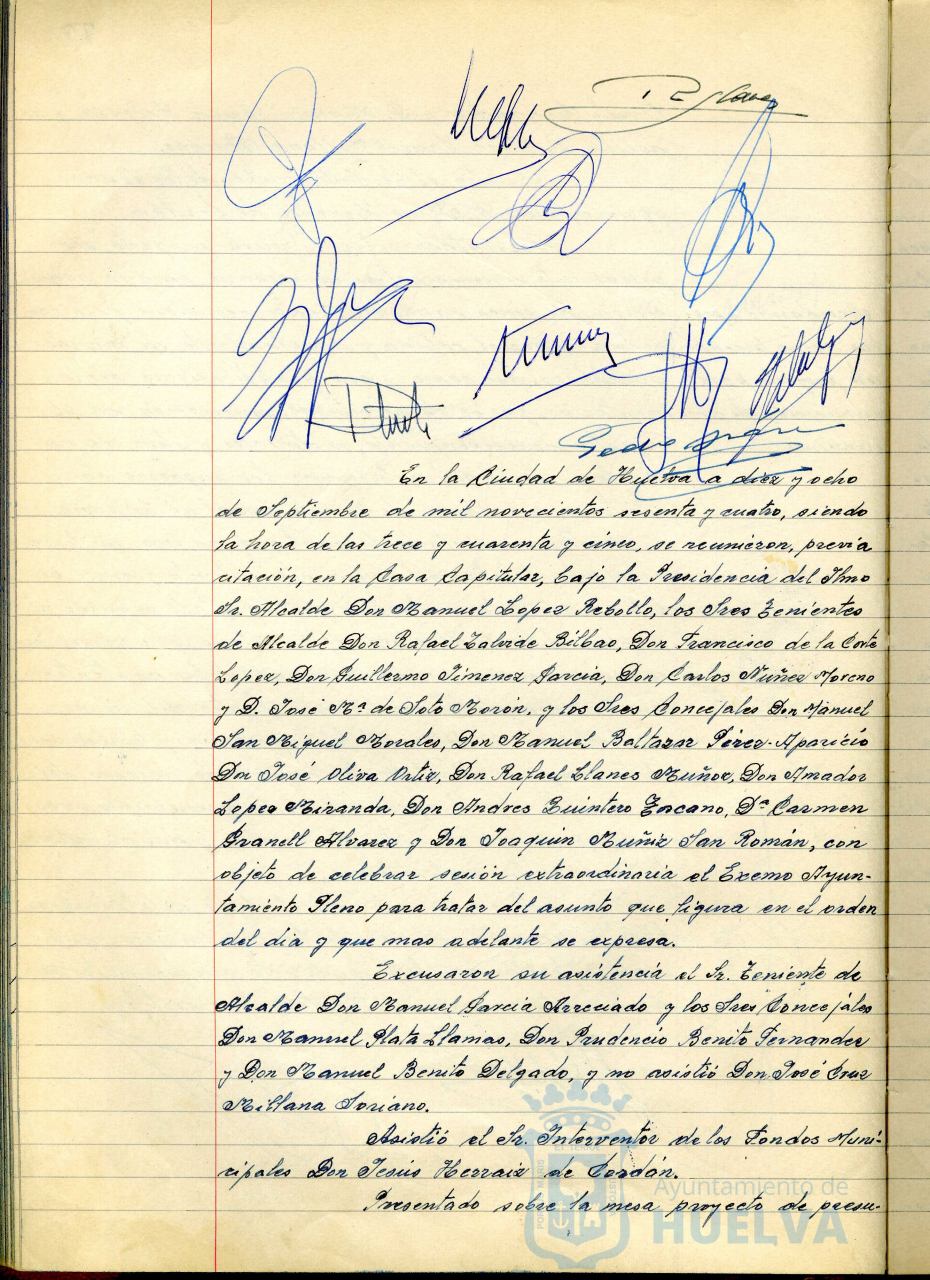 En la Ciudad de Huelva a diez y ocho
de Septiembre de mil novecientos sesenta y cuatro, siendo
la hora de las trece y cuarenta y cinco, se reunieron, previa
citación, en la Casa Capitular, bajo la Presidencia del Ilmo
Sr. Alcalde Don Manuel Lopez Rebollo, los Sres Tenientes
de Alcalde Don Rafael Zalvide Bilbao, Don Francisco de la Corte
Lopez, Don Guillermo Jimenez Garcia, Don Carlos Nuñez Moreno
y D. José Mª de Soto Morón, y los Sres Concejales Don Manuel
San Miguel Morales, Don Manuel Baltazar Pérez-Aparicio
Don José Oliva Ortiz, Don Rafael Llanes Muñoz, Don Amador
Lopez Miranda, Don Andres Quintero Toscano, Dª Carmen
Granell Alvarez y Don Joaquin Muñiz San Román, con
objeto de celebrar sesión extraordinaria el Excmo Ayun-
tamiento Pleno para tratar del asunto que figura en el orden
del dia y que mas adelante se expresa.
Excusaron su asistencia el Sr. Teniente de
Alcalde Don Manuel Garcia Arreciado y los Sres Concejales
Don Manuel Plata Llamas, Don Prudencio Benito Fernandez
y Don Manuel Benito Delgado, y no asistió Don José Cruz
Millana Soriano.
Asistió el Sr. Interventor de los Fondos Muni-
cipales Don Jesús Herraiz de Cordán.
Presentado sobre la mesa proyecto de presu-
Ayuntamiento de
HUELVA